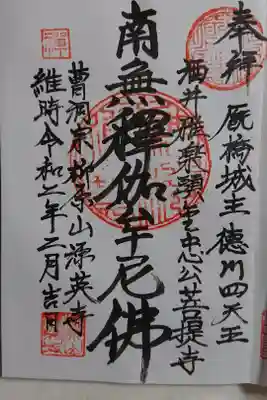 奉拝 厩橋城主 徳川四天王
酒井雅楽頭重忠公菩提寺
南無釋伽牟尼佛
曹洞宗 柳条山 源英寺
維時令和二年二月吉日